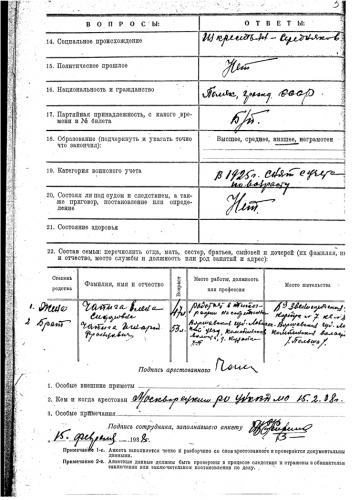 ВОПРОСЫ: ОТВЕТЫ:
14. Социальное происхождение Из крестьян-середняков
15. Политическое прошлое Нет
16. Национальность и гражданство Поляк, гражд. СССР
17. Партийная принадлежность, с какого времени и № билета Б/п.
18. Образование (подчеркнуть и указать точно что закончил): Высшее, среднее, низшее, неграмотен
19. Категория воинского учета в 1925г. снят с учета по возрасту
20. Состоял ли под судом и следствием, а также приговор, постановление или определение Нет.
21. Состояние здоровья
22. Состав семьи: перечислить отца, мать, сестер, братьев, сыновей и дочерей (их фамилия, имя
и отчество, место службы и должность или род занятий и адрес):
Степень родства
Фамилия, имя и отчество
Возраст
Место работы, должность или профессия
Место жительства
1. Жена
47л
2. Брат
53л.
Подпись арестованного
1. Особые внешние приметы
2. Кем и когда арестован Москворецким РО УНКВД МО 15.2.38г.
3. Особые примечания
Подпись сотрудника, заполнившего анкету
15 февраля 1938г.
Примечание 1-е. Анкета заполняется четко и разборчиво со слов арестованного и проверяется документальными
данными.
Примечание 2-е. Анкетные данные должны быть проверены в процессе следствия и отражены в обвинительном
заключении или заключительном постановлении по делу.